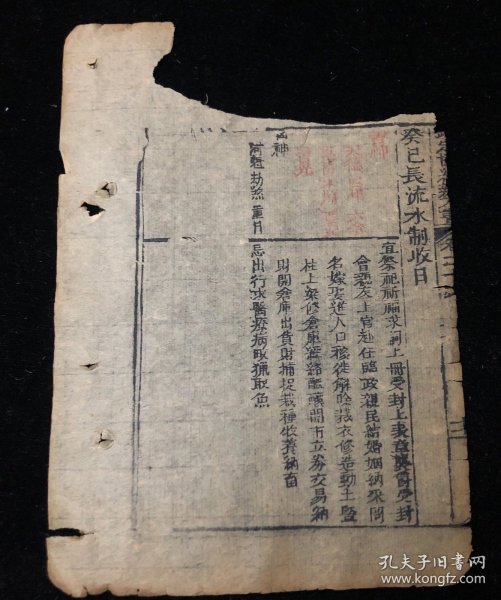 癸巳長流水制收日
宜祭祀祈福求嗣上冊受封上表章襲爵受封
會親友上官赴任臨政親民結婚姻納采問
名嫁娶進人口移徙解除裁衣修造動土竪
柱上梁修倉庫經絡醞釀開市立券交易納
財開倉庫出貨財捕捉栽種牧養納畜
忌出行求醫療病畋獵取魚
凶神
河魁劫煞重日
孔夫子旧书网
www.kongfz.com